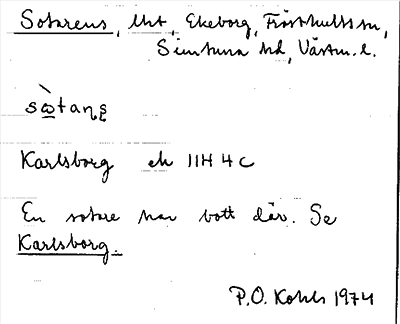 Sotarens, lht, Ekeborg, Frösthults sn,
Simtuna hd, Västm. l.
sɷ̀taṇʂ
Karlsborg ek 11H 4c
En sotare har bott där. Se
Karlsborg.
P.O. Kohls 1974